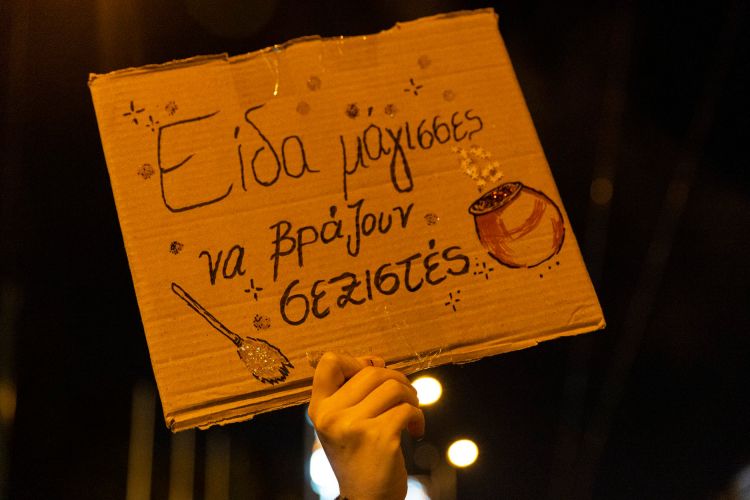 Είδα μάγισσες
να βράζουν
σεξιστές